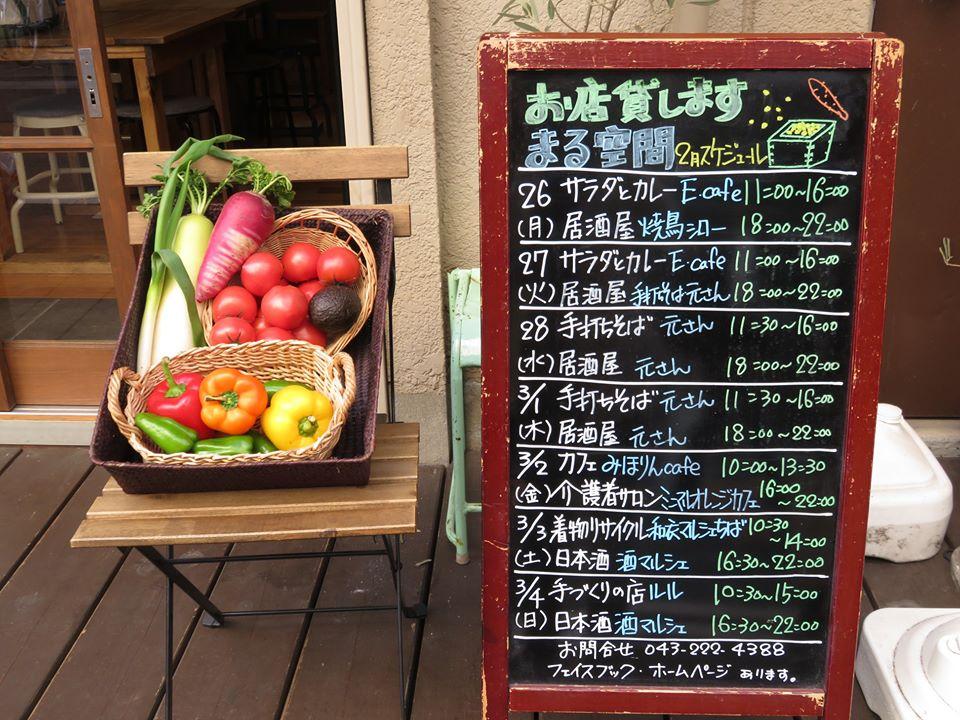 お店貸します
まる空間 2月スケジュール
26 サラダとカレー E・cafe 11=00~16=00
(月) 居酒屋 焼鳥シロー 18=00~22=00
27 サラダとカレー E・cafe 11=00~16=00
(火) 居酒屋 手打そば元さん 18=00~22=00
28 手打ちそば 元さん 11=30~16=00
(水) 居酒屋 元さん 18=00~22=00
3/1 手打ちそば 元さん 11=30~16=00
(木) 居酒屋 元さん 18=00~22=00
3/2 カフェ みほりんcafe 10=00~13=30
(金) 介護者サロン ミニマルオレンジカフェ 16=00~22=00
3/3 着物リサイクル 和衣マルシェちば 10=30~14=00
(土) 日本酒 酒マルシェ 16=30~22=00
3/4 手づくりの店 ルル 10=30~15=00
(日) 日本酒 酒マルシェ 16=30~22=00
お問合せ 043-222-4388
フェイスブック・ホームページ あります。